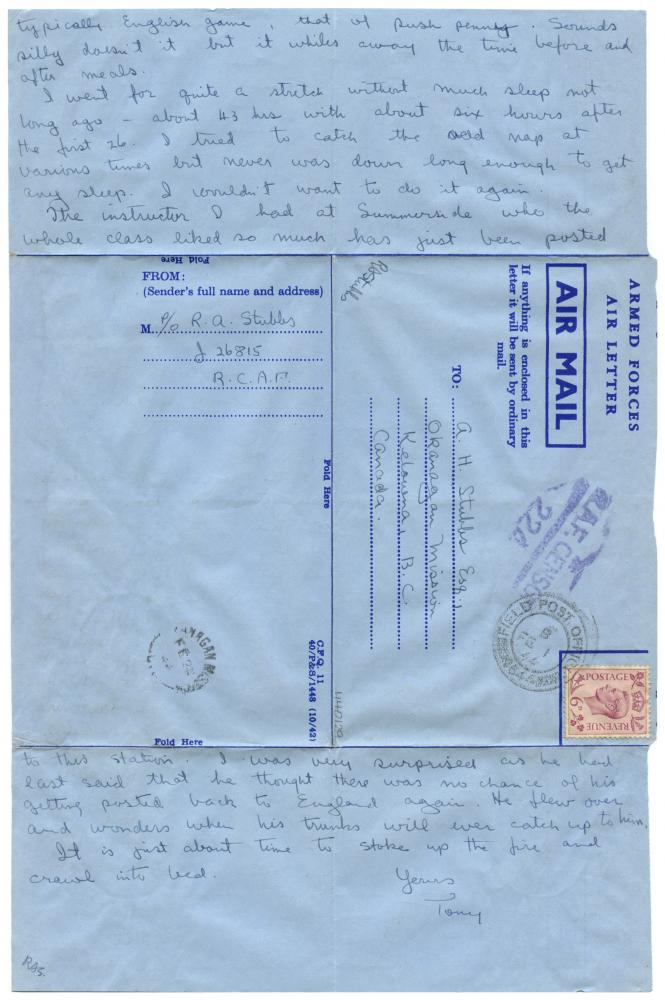 typically English game, that of push penny. Sounds
silly doesn't it but it whiles away the time before and
after meals.
I went for quite a stretch without much sleep not
long ago - about 43 hrs with about six hours after
the first 26. I tried to catch the odd nap at
various times but never was down long enough to get
any sleep. I wouldn't want to do it again.
The instructor I had at Summerside who the
whole class liked so much has just been posted
Fold Here
FROM:
(Sender's full name and address)
M. P/O R. A. Stubbs
J 26815
R.C.A.F.
Fold Here
C.F.Q. 11
40/P&S/1448 (10/42)
Fold Here
ARMED FORCES
AIR LETTER
AIR MAIL
If anything is enclosed in this
letter it will be sent by ordinary
mail.
RAStubbs
TO:
A. H. Stubbs Esq.,
Okanagan Mission
Kelowna, B. C.
Canada.
R.A.F. CENSOR
224
FIELD POST OFFICE
POSTAGE
6D
REVENUE
to this station. I was very surprised as he had
last said that he thought there was no chance of his
getting posted back to England again. He flew over
and wonders when his trunks will ever catch up to him.
It is just about time to stoke up the fire and
crawl into bed.
Yours
Tony
RAS.